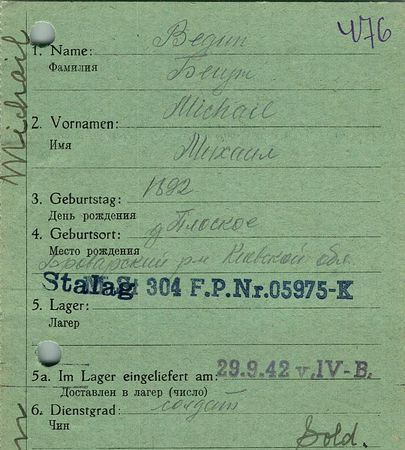 476
1. Name: Ведип
Фамилия
Michail
2. Vornamen: Michail
Имя Михаил
3. Geburtstag: 1892
День рождения
4. Geburtsort: д Плоское
Место рождения
Броварский рн Киевской обл.
Stalag 304 F.P.Nr.05975-K
5. Lager:
Лагер
5a. Im Lager eingeliefert am: 29.9.42 v. IV-B.
Доставлен в лагер (число)
6. Dienstgrad: солдат
Чин
Sold.